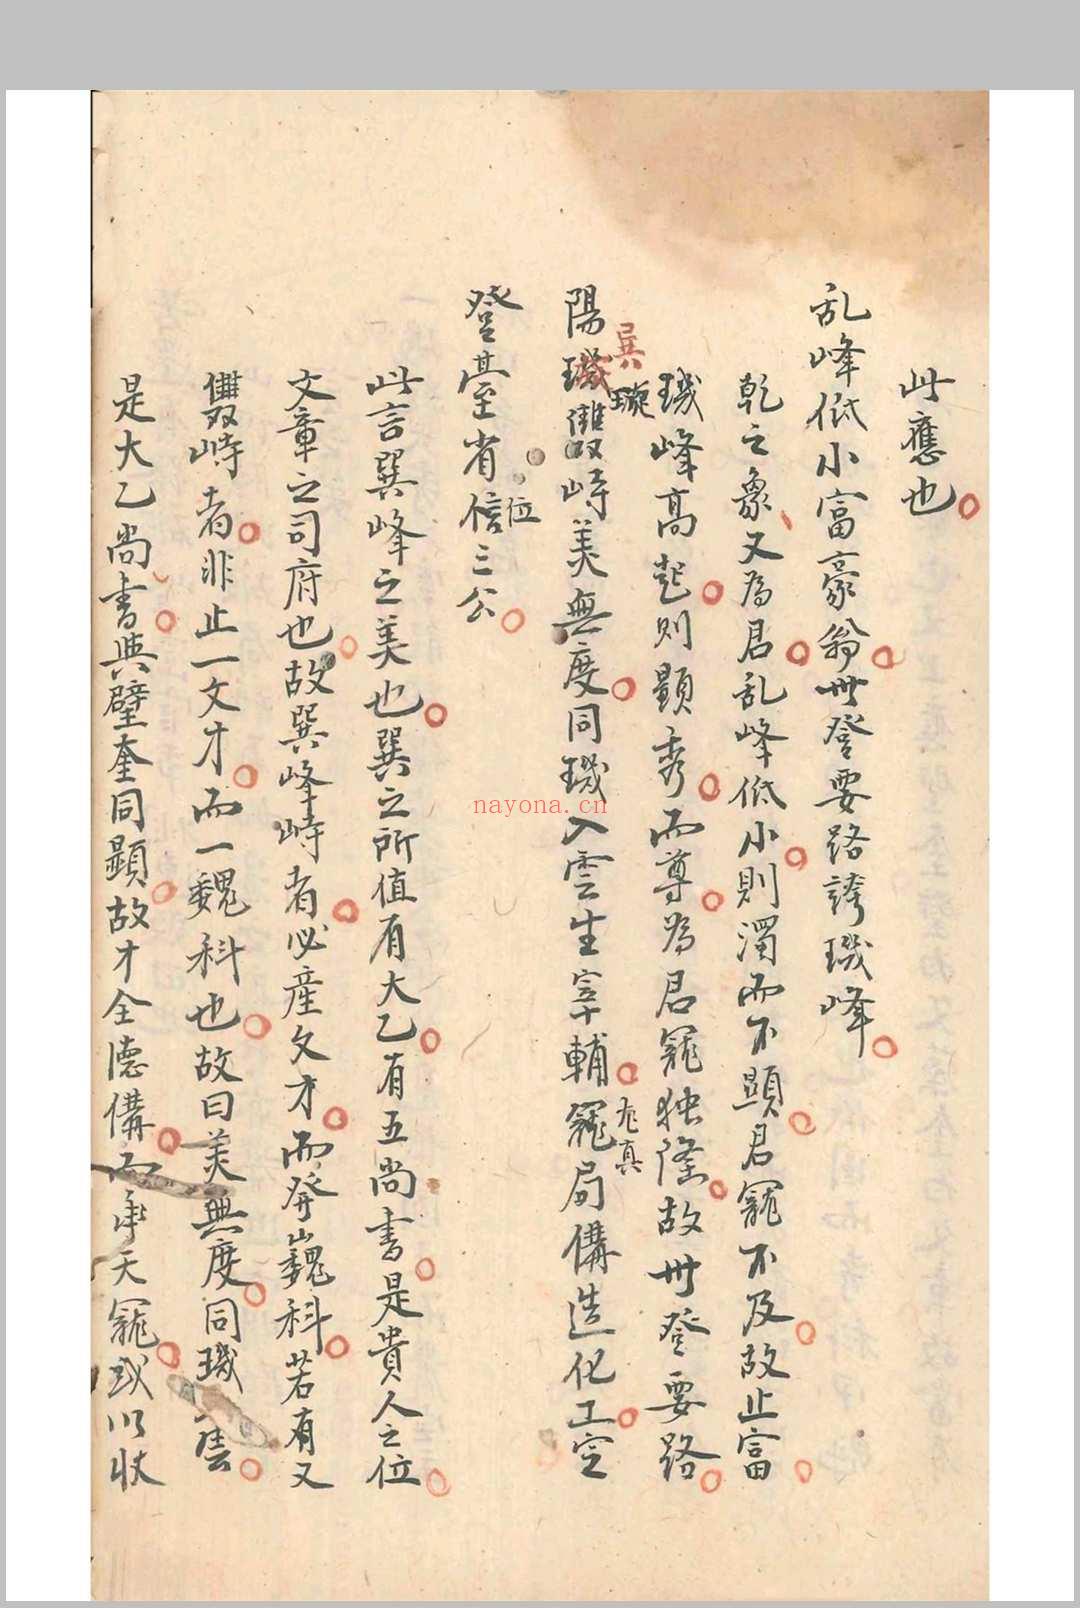 此應也
乱峰低小富豪翁世登要路誇璣峰
乾之象又為君乱峰低小則濁而不顕君寵不及故止富
璣峰高起則顕秀而尊為君寵独隆故世登要路
巽
璇
陽璣雙峙美無度同璣入雲生宰輔寵局備造化工定
尨真
登臺省信三公
位
此言巽峰之美也巽之所值有大乙有五尚書是貴人之位
文章之司府也故巽峰峙者必産文才而發巍科若有又
雙峙者非止一文才而一巍科也故曰美無度同璣入雲
是大乙尚書與壁奎同顕故才全德備而承天寵或以收
nayona.cn